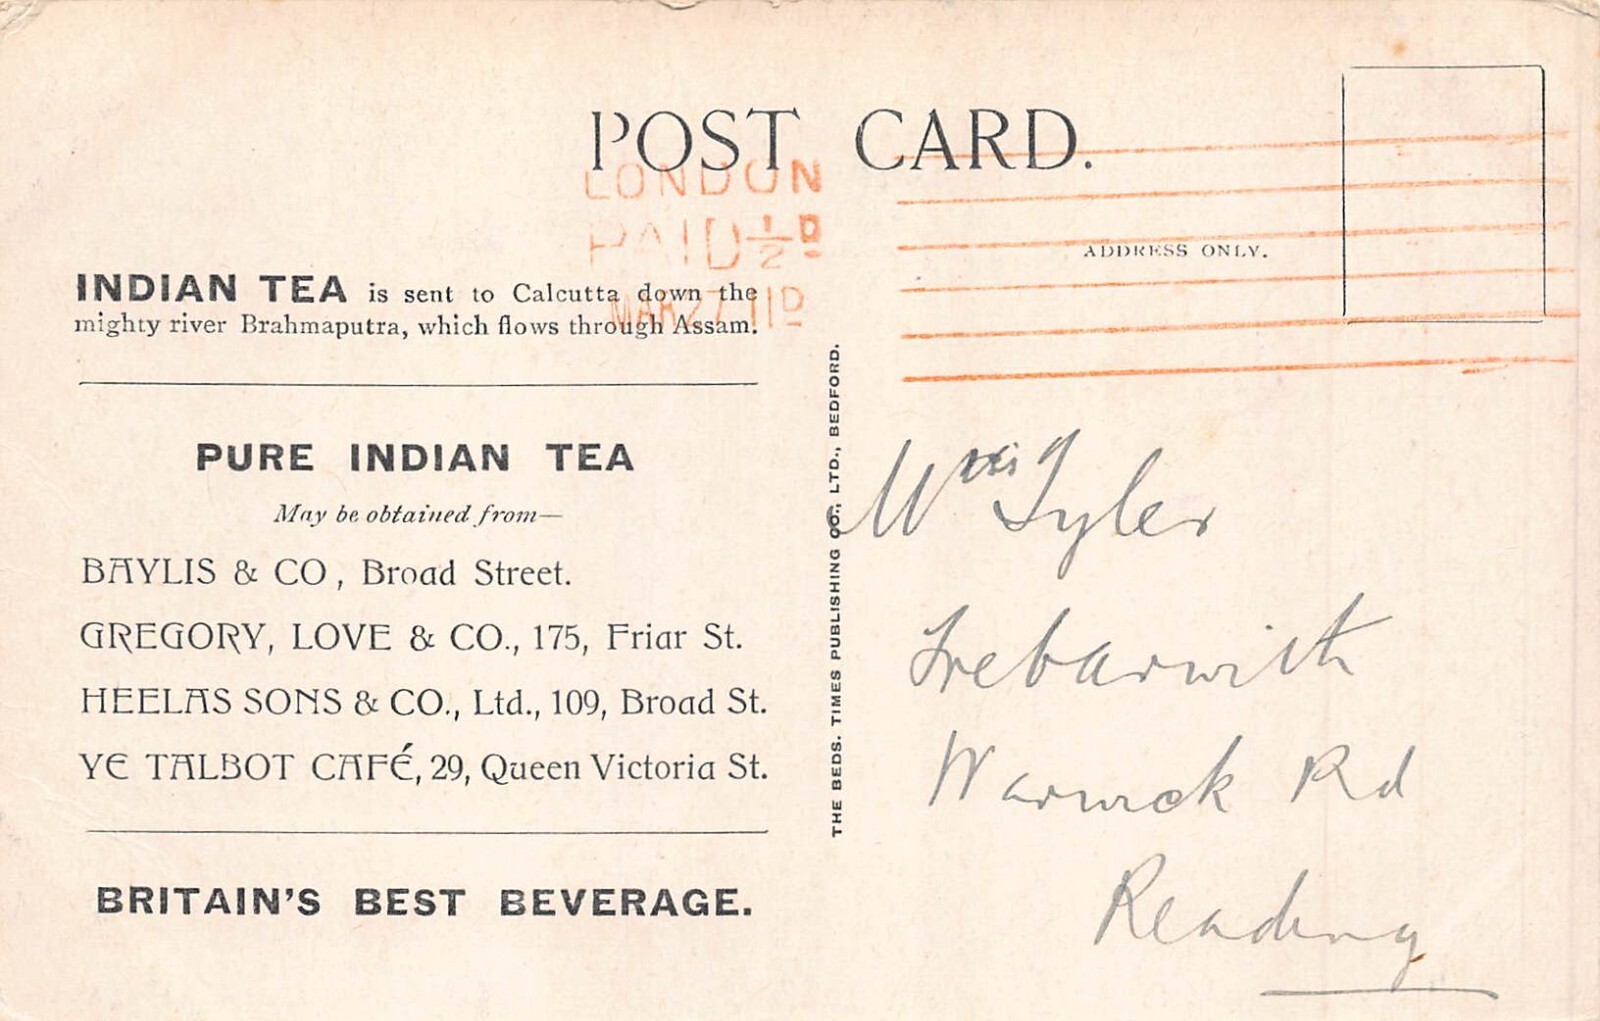 POST CARD.
LONDON
PAID ½D
MAR 27 11D
ADDRESS ONLY.
INDIAN TEA is sent to Calcutta down the
mighty river Brahmaputra, which flows through Assam.
PURE INDIAN TEA
May be obtained from—
BAYLIS & CO, Broad Street.
GREGORY, LOVE & CO., 175, Friar St.
HEELAS SONS & CO., Ltd., 109, Broad St.
YE TALBOT CAFÉ, 29, Queen Victoria St.
BRITAIN'S BEST BEVERAGE.
THE BEDS. TIMES PUBLISHING CO., LTD., BEDFORD.
Tyler
Trebarwith
Warwick Rd
Reading